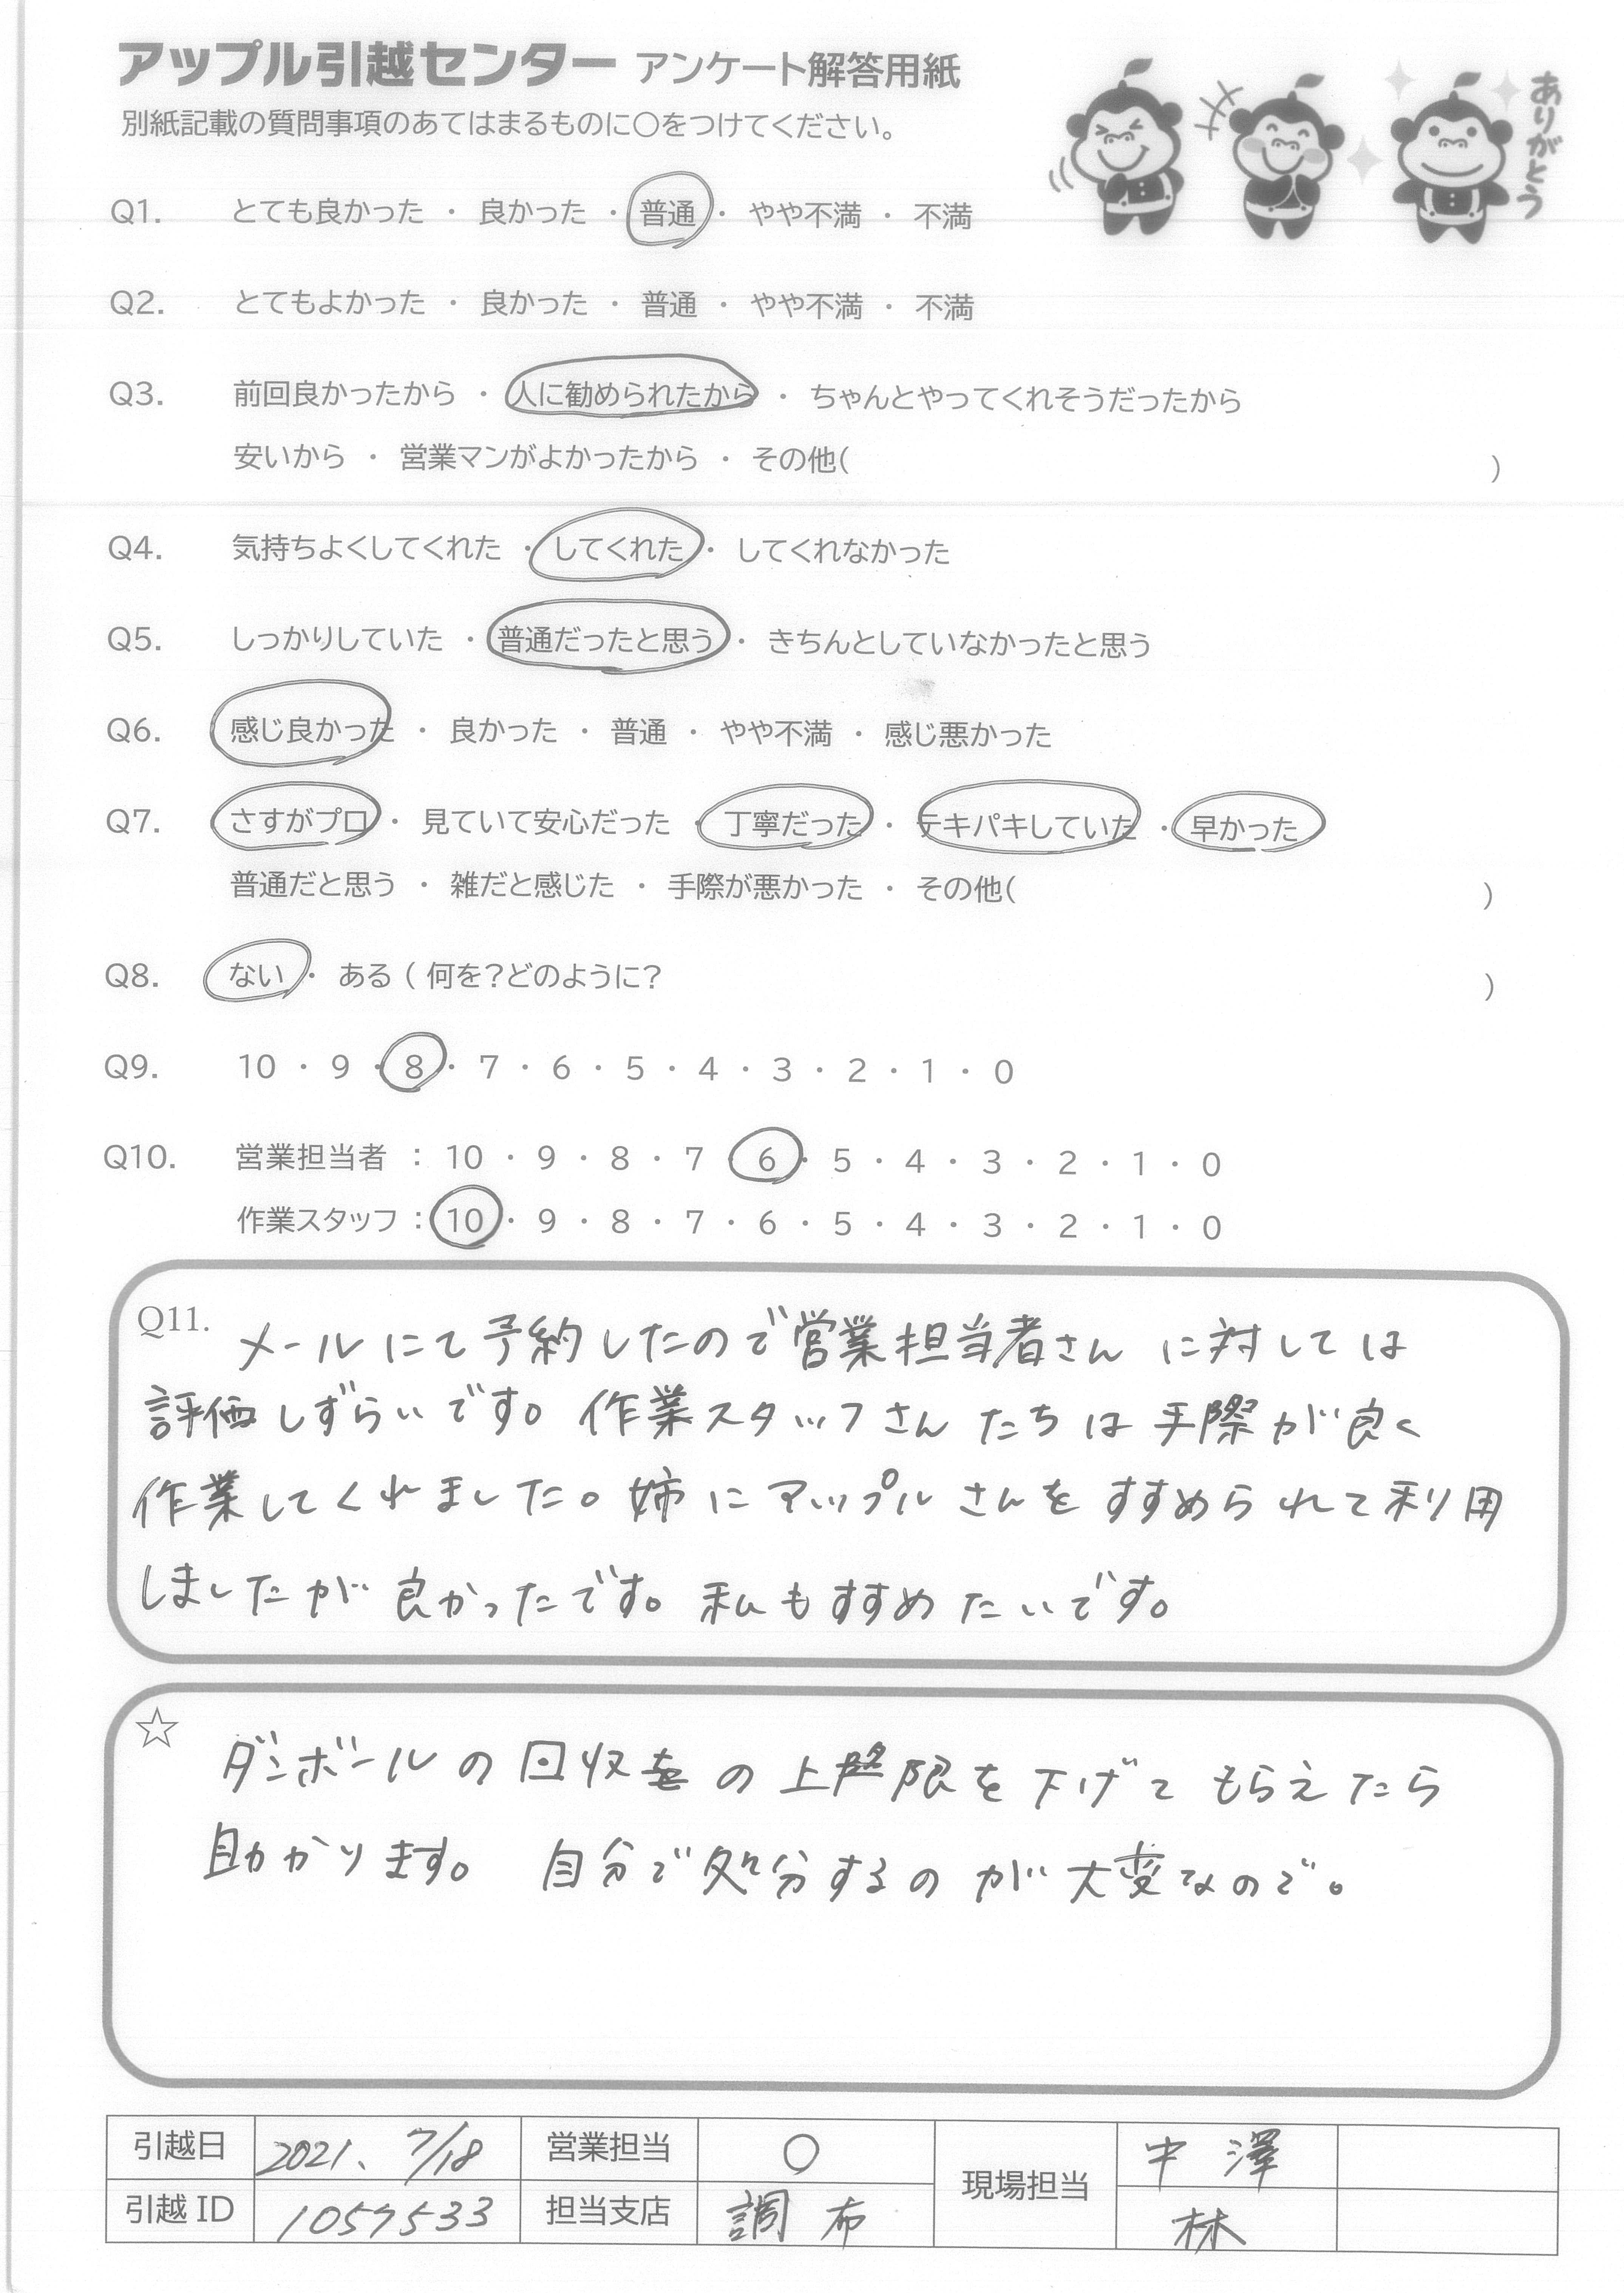 アップル引越センター アンケート解答用紙
別紙記載の質問事項のあてはまるものに○をつけてください。
ありがとう
Q1. とても良かった ・ 良かった ・ 普通 ・ やや不満 ・ 不満
Q2. とてもよかった ・ 良かった ・ 普通 ・ やや不満 ・ 不満
Q3. 前回良かったから ・ 人に勧められたから ・ ちゃんとやってくれそうだったから
安いから ・ 営業マンがよかったから ・ その他( )
Q4. 気持ちよくしてくれた ・ してくれた ・ してくれなかった
Q5. しっかりしていた ・ 普通だったと思う ・ きちんとしていなかったと思う
Q6. 感じ良かった ・ 良かった ・ 普通 ・ やや不満 ・ 感じ悪かった
Q7. さすがプロ ・ 見ていて安心だった ・ 丁寧だった ・ テキパキしていた ・ 早かった
普通だと思う ・ 雑だと感じた ・ 手際が悪かった ・ その他( )
Q8. ない ・ ある ( 何を?どのように? )
Q9. 10 ・ 9 ・ 8 ・ 7 ・ 6 ・ 5 ・ 4 ・ 3 ・ 2 ・ 1 ・ 0
Q10. 営業担当者 : 10 ・ 9 ・ 8 ・ 7 ・ 6 ・ 5 ・ 4 ・ 3 ・ 2 ・ 1 ・ 0
作業スタッフ : 10 ・ 9 ・ 8 ・ 7 ・ 6 ・ 5 ・ 4 ・ 3 ・ 2 ・ 1 ・ 0
Q11. メールにて予約したので営業担当者さんに対しては
評価しずらいです。作業スタッフさんたちは手際が良く
作業してくれました。姉にアップルさんをすすめられて利用
しましたが良かったです。私もすすめたいです。
☆ ダンボールの回収の上限を下げてもらえたら
助かります。 自分で処分するのが大変なので。
引越日 2021、7/18 営業担当 ○ 現場担当 中澤
引越ID 1057533 担当支店 調布 林